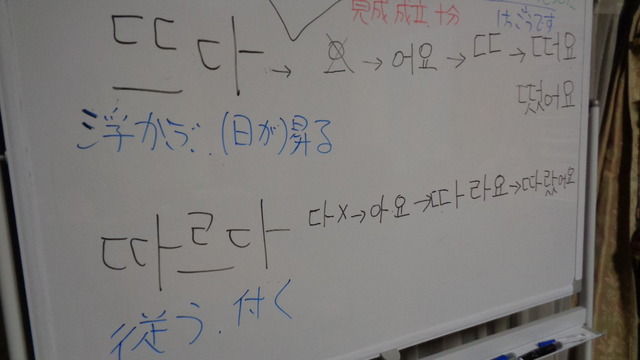 完成 成立 十分
けっこうです
뜨다 → 으 → 어요 → 뜨 → 떠요
떴어요
浮かぶ. (日が)昇る
따르다 다x→아요→따라요→따랐어요
従う. 付く